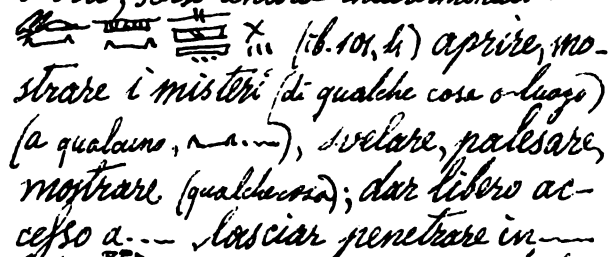 (ib. 101, b) aprire, mo-
strare i misteri (di qualche cosa o luogo)
(a qualcuno, ), svelare, palesare,
mostrare (qualchecosa); dar libero ac-
cesso a.... , lasciar penetrare in